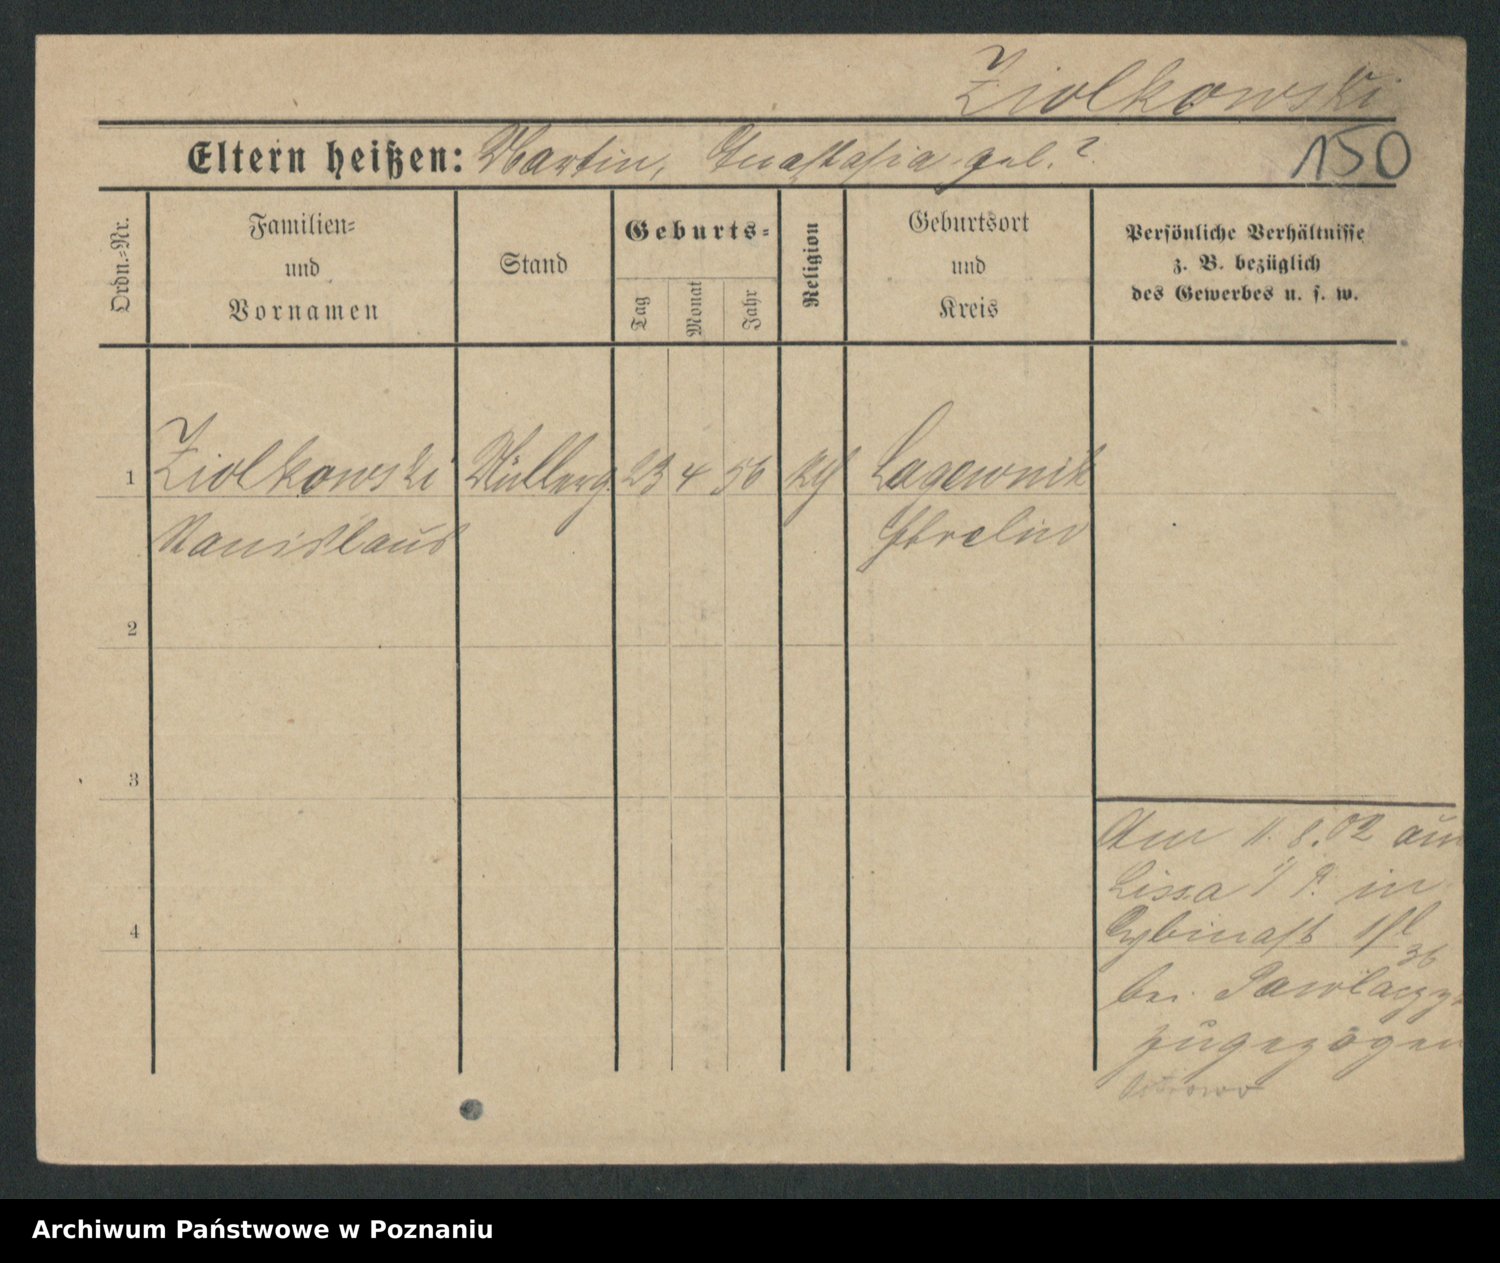 Ziolkowski
Eltern heißen: Martin, Anastasia geb. ?
150
Ordn.-Nr.
Familien-
und
Vornamen
Stand
Geburts-
Tag
Monat
Jahr
Religion
Geburtsort
und
Kreis
Persönliche Verhältnisse
z. B. bezüglich
des Gewerbes u. s. w.
1 Ziolkowski Müllerg. 23 4 56 kth Lagewnik
Stanislaus Strelno
2
3
4
Am 11. 8. 02 aus
Lissa i/P. in
bei Pawlaczyk
zugezogen
Archiwum Państwowe w Poznaniu